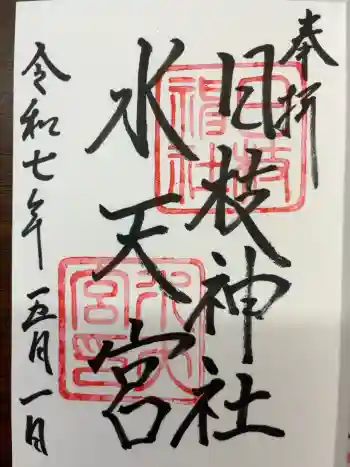 奉拝
日枝神社
水天宮
令和七年五月一日
日枝神社
水天宮印